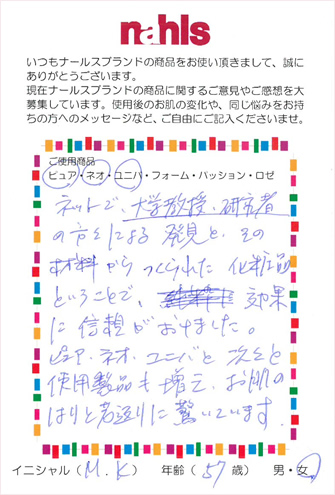 nahls
いつもナールスブランドの商品をお使い頂きまして、誠に
ありがとうございます。
現在ナールスブランドの商品に関するご意見やご感想を大
募集しています。使用後のお肌の変化や、同じ悩みをお持
ちの方へのメッセージなど、ご自由にご記入くださいませ。
ご使用商品
ピュア・ネオ・ユニバ・フォーム・パッション・ロゼ
ネットで、大学教授、研究者
の方々による発見と、その
材料からつくられた化粧品
ということで、効果
に信頼がおけました。
ピュア・ネオ・ユニバと次々と
使用製品も増え、お肌の
はりと若返りに驚いています。
イニシャル（M.K） 年齢（57歳） 男・女